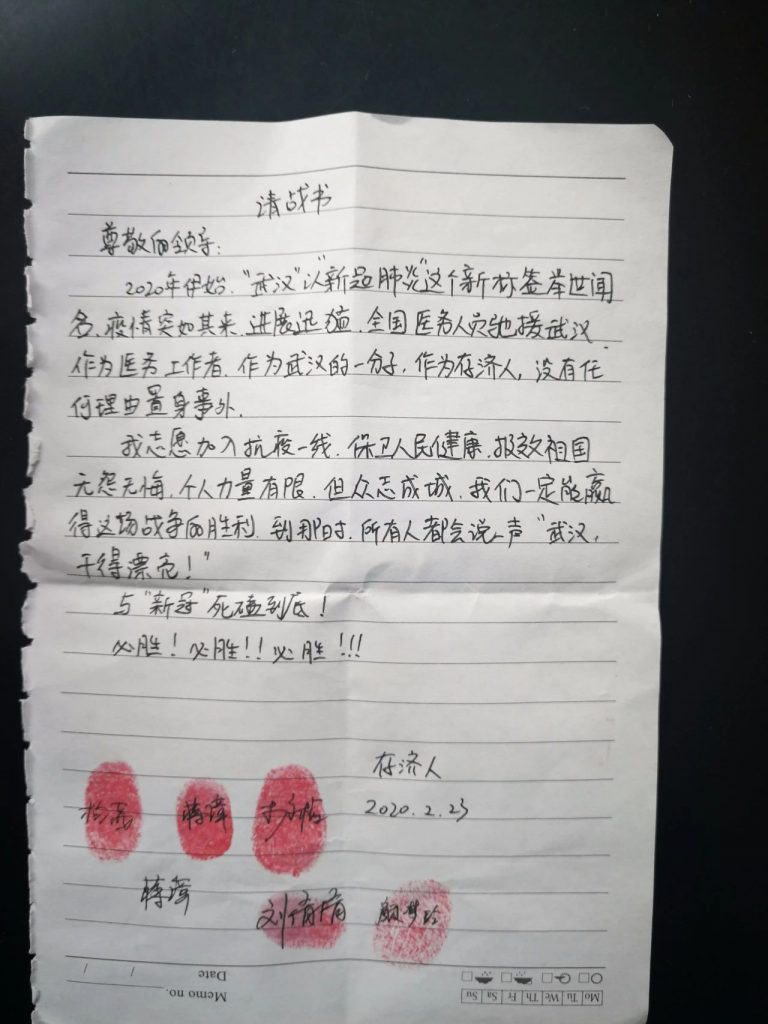 请战书
尊敬的领导:
2020年伊始,“武汉”以“新冠肺炎”这个新标签举世闻
名,疫情突如其来,进展迅猛,全国医务人员驰援武汉.
作为医务工作者,作为武汉的一分子,作为存济人,没有任
何理由置身事外.
我志愿加入抗疫一线,保卫人民健康,报效祖国
无怨无悔,个人力量有限,但众志成城,我们一定能赢
得这场战争的胜利,到那时,所有人都会说一声“武汉,
干得漂亮!”
与“新冠”死磕到底!
必胜!必胜!!必胜!!!
存济人
2020.2.23
蒋
蒋
刘倩倩
Mo Tu We Th Fr Sa Su
Memo no.
Date / /